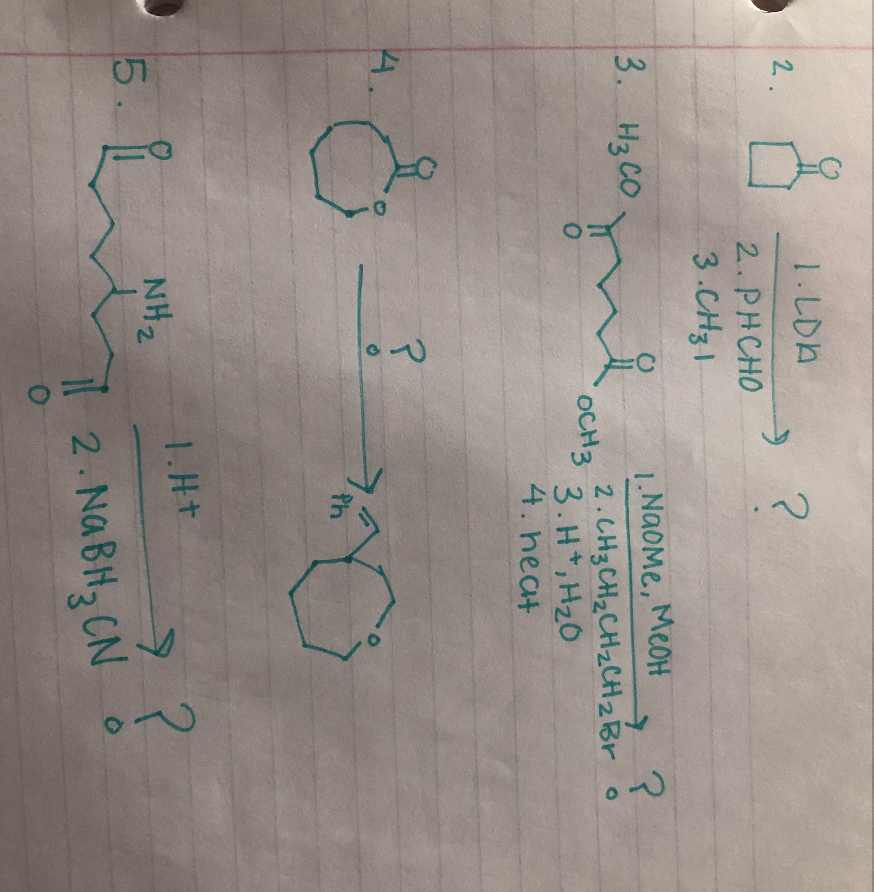 2.
O
1. LDA
2. PHCHO
3. CH3I
?
3.
H3CO
O
O
OCH3
1. NaOMe, MeOH
2. CH3CH2CH2CH2Br
3. H+, H2O
4. heat
?
4.
O
O
?
Ph
O
5.
O
NH2
O
1. H+
2. NaBH3CN
?